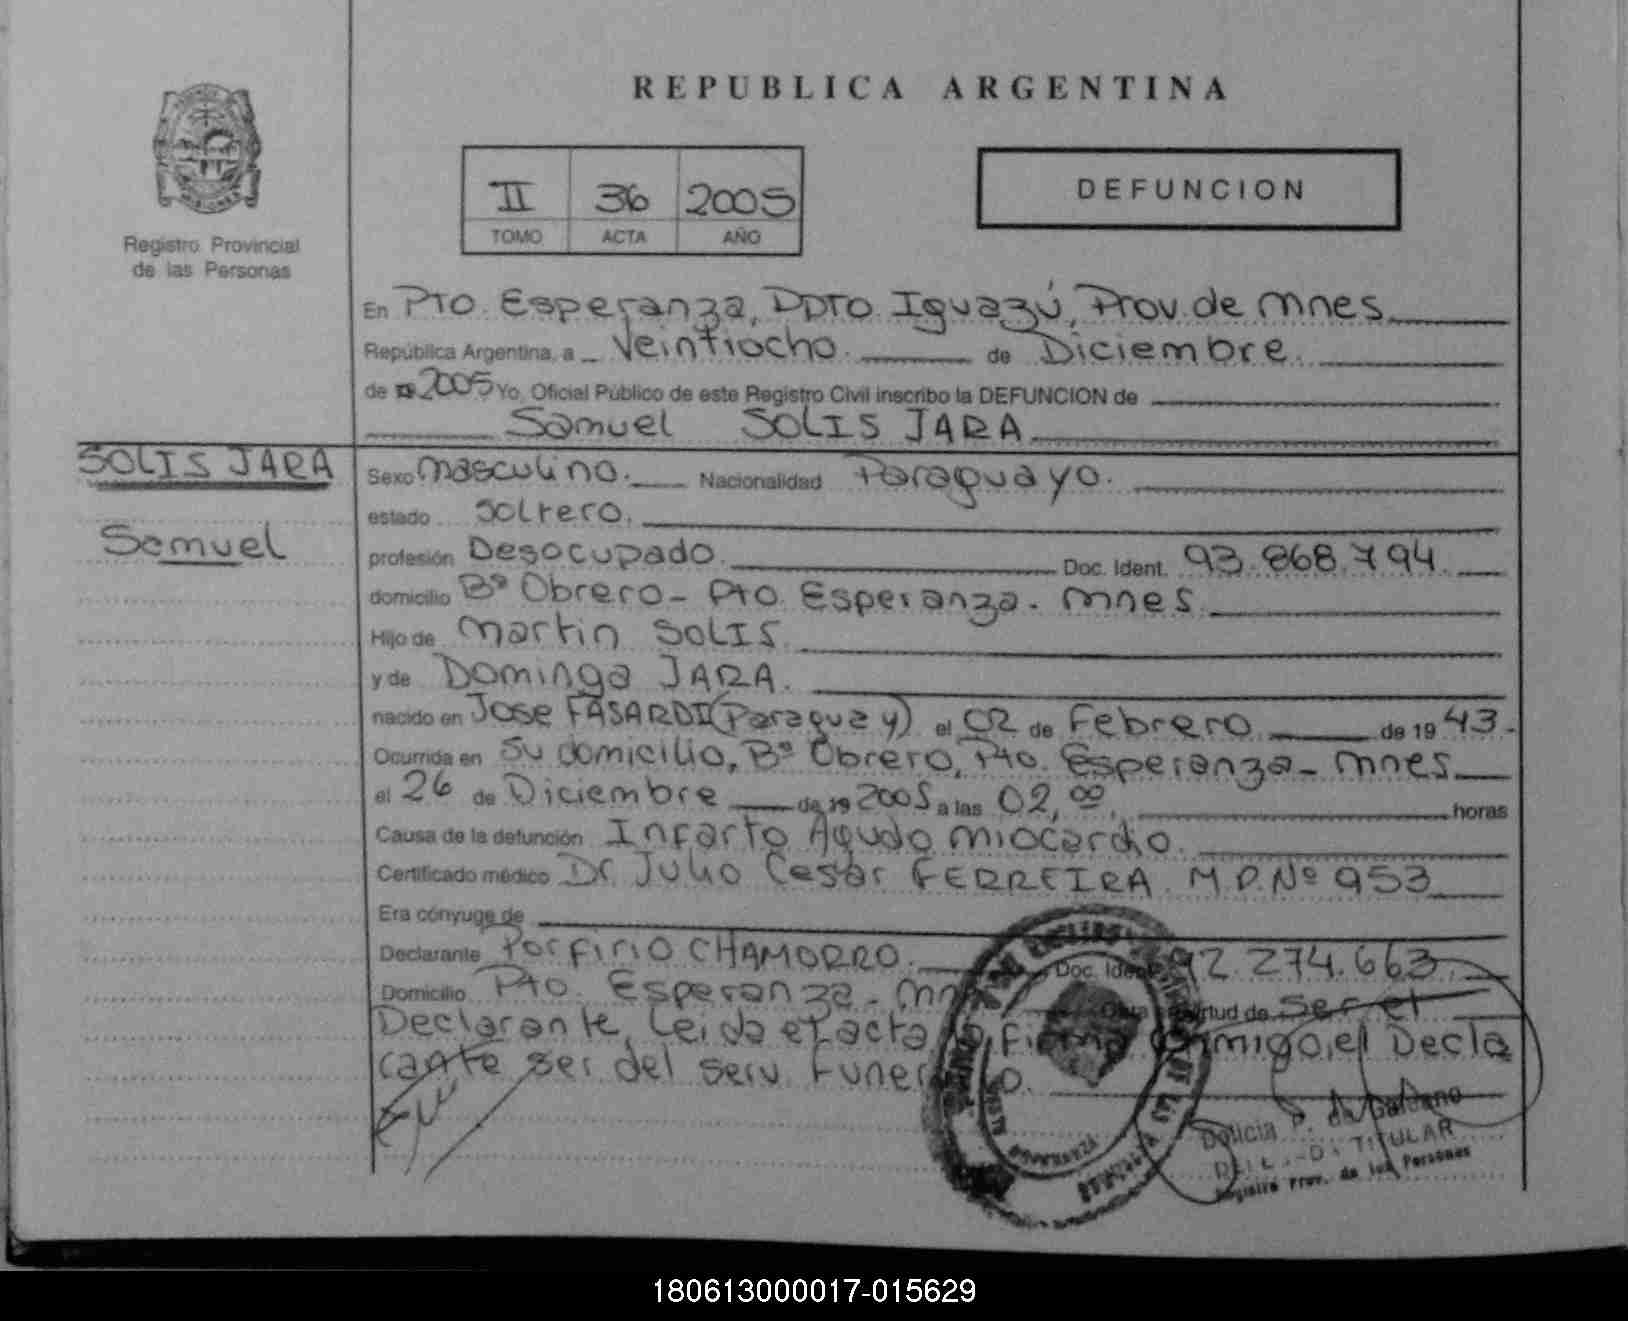 REPUBLICA ARGENTINA
Registro Provincial
de las Personas
II 36 2005
TOMO ACTA AÑO
DEFUNCION
En Pto. Esperanza, Dpto Iguazú, Prov. de Mnes.
República Argentina, a Veintiocho. de Diciembre.
de 2005 Yo, Oficial Público de este Registro Civil inscribo la DEFUNCION de
Samuel SOLIS JARA
SOLIS JARA
Samuel
Sexo Masculino. Nacionalidad Paraguayo.
estado Soltero.
profesión Desocupado. Doc. Ident. 93.868.794.
domicilio Bº Obrero - Pto Esperanza - Mnes.
Hijo de Martin SOLIS.
y de Dominga JARA.
nacido en Jose FASARDI (Paraguay) el 02 de Febrero. de 19 43.-
Ocurrida en Su domicilio, Bº Obrero, Pto. Esperanza - Mnes.
el 26 de Diciembre de 19 2005 a las 02,00. horas
Causa de la defunción Infarto Agudo Miocardio.
Certificado médico Dr. Julio Cesar FERREIRA. M.P.Nº 953
Era cónyuge de
Declarante Porfirio CHAMORRO. Doc. Ident. 92.274.663.
Domicilio Pto. Esperanza - de Ser el
Declarante, Leida el acta el Decla
rante ser del serv.
P. de Galeano
TITULAR
Registro Prov. de las Personas
180613000017-015629